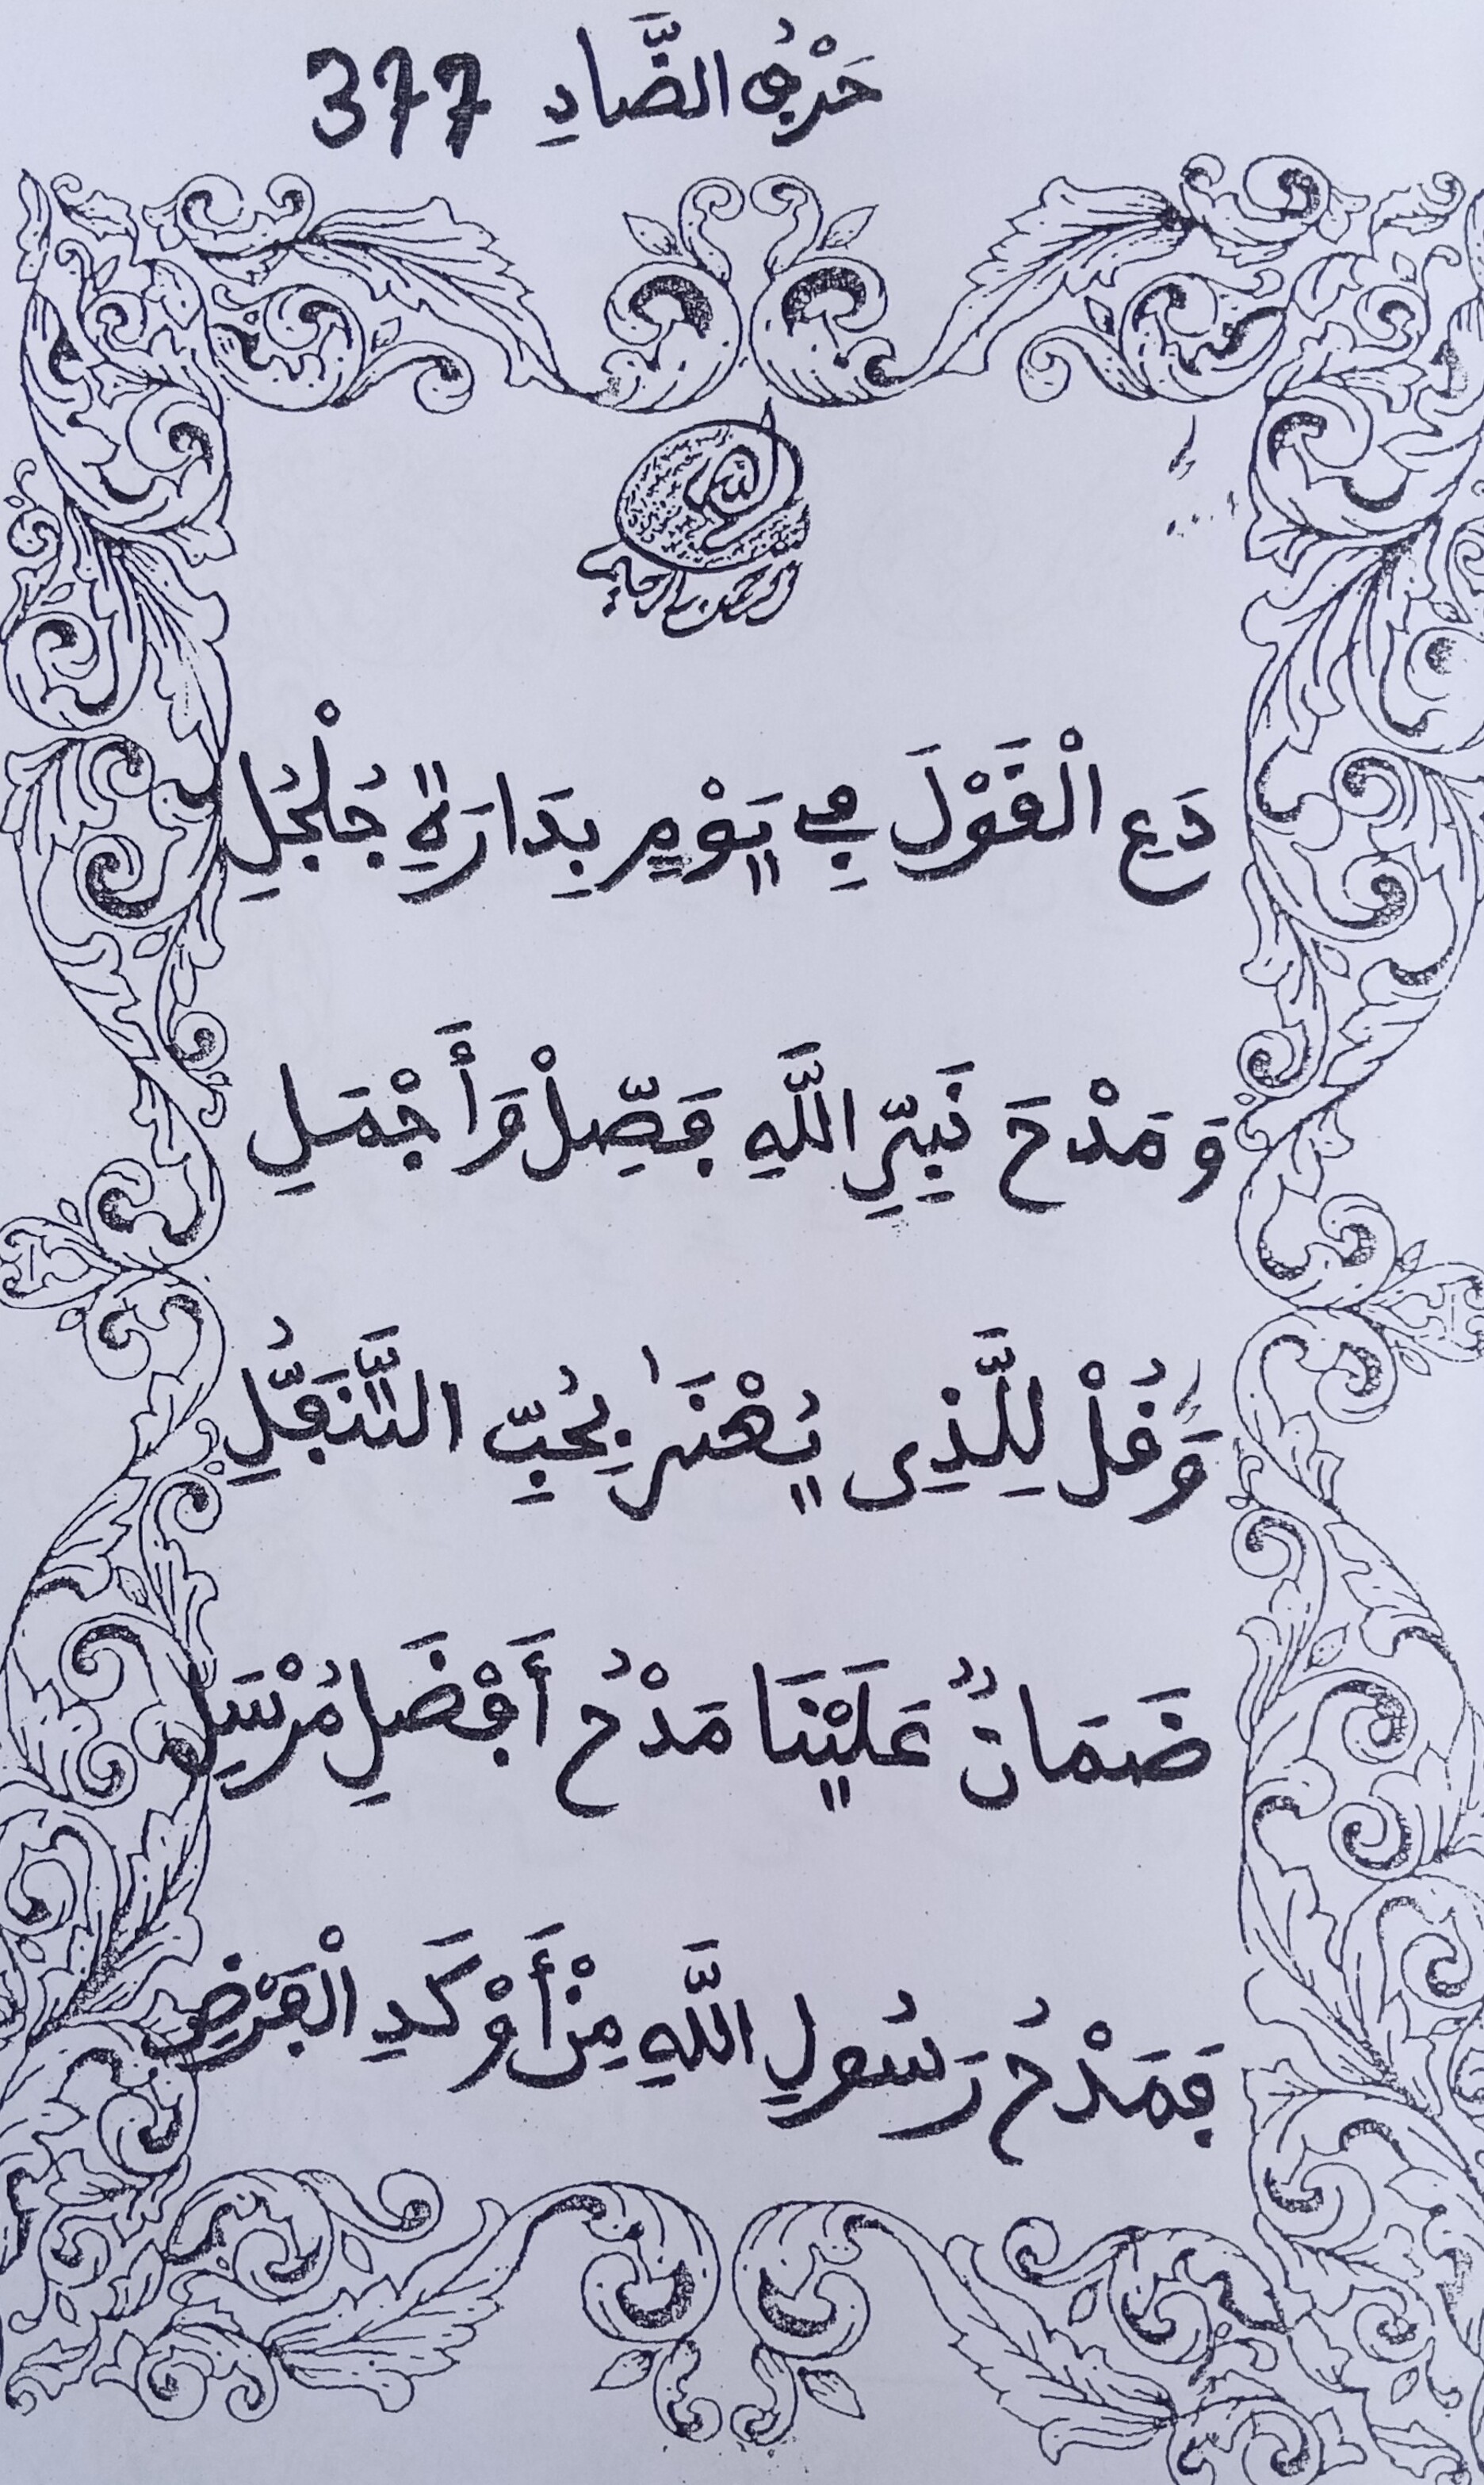 حَرْفُ الضَّادِ 377
الله الرحمن الرحيم
دَعِ الْقَوْلَ فِے يَوْمٍ بِدَارَةِ جُلْجُلِ
وَمَدْحَ نَبِيِّ اللَّهِ فَصِّلْ وَأَجْمَلِ
وَقُلْ لِلَّذِى يُهْنَى بِحُبِّ التَّنَفُّلِ
ضَمَانٌ عَلَيْنَا مَدْحُ أَفْضَلِ مُرْسَلِ
فَمَدْحُ رَسُولِ اللَّهِ مِنْ أَوْكَدِ الْفَرْضِ